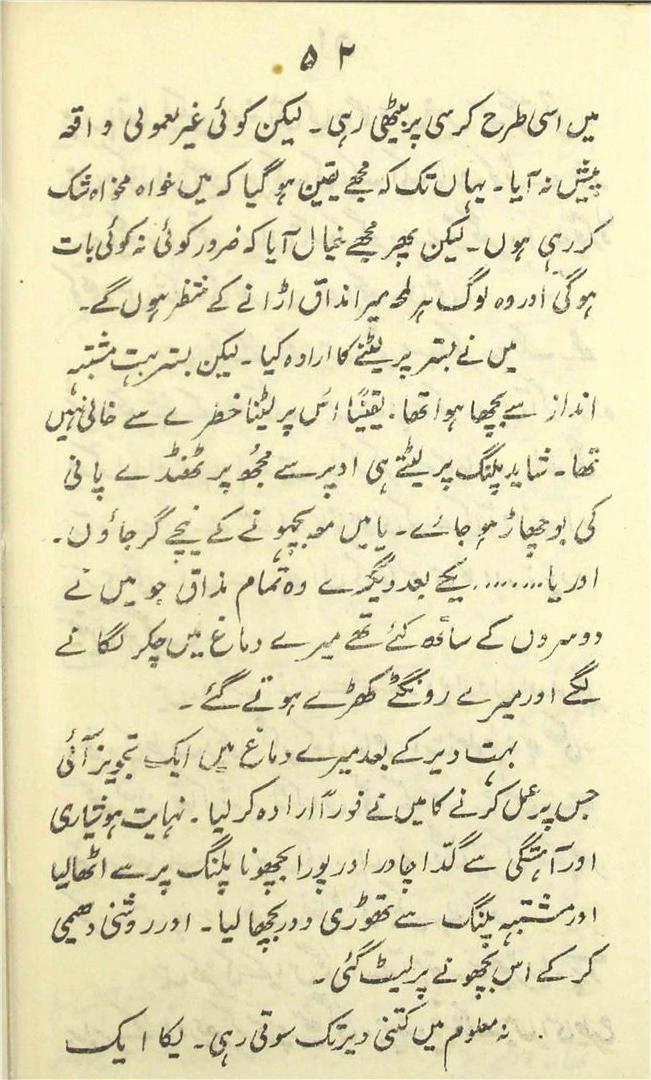 ۵۲
میں اسی طرح کرسی پر بیٹھی رہی ۔ لیکن کوئی غیر معمولی واقعہ
پیش نہ آیا ۔ یہاں تک کہ مجھے یقین ہو گیا کہ میں خواہ مخواہ شک
کر رہی ہوں ۔ لیکن پھر مجھے خیال آیا کہ ضرور کوئی نہ کوئی بات
ہوگی اور وہ لوگ ہر لمحہ میرا مذاق اڑانے کے منتظر ہوں گے ۔
میں نے بستر پر لیٹنے کا ارادہ کیا ۔ لیکن بستر بہت مشتبہ
انداز سے بچھا ہوا تھا ۔ یقیناً اُس پر لیٹنا خطرے سے خالی نہیں
تھا ۔ شاید پلنگ پر لیٹتے ہی اوپر سے مجھ پر ٹھنڈے پانی
کی بوچھاڑ ہو جائے ۔ یا میں مع بچھونے کے نیچے گر جاؤں ۔
اور یا ........ یکے بعد دیگرے وہ تمام مذاق جو میں نے
دوسروں کے ساتھ کئے تھے میرے دماغ میں چکر لگانے
لگے اور میرے رونگٹے کھڑے ہوتے گئے ۔
بہت دیر کے بعد میرے دماغ میں ایک تجویز آئی
جس پر عمل کرنے کا میں نے فوراً ارادہ کر لیا ۔ نہایت ہوشیاری
اور آہستگی سے گدا چادر اور پورا بچھونا پلنگ پر سے اٹھا لیا
اور مشتبہ پلنگ سے تھوڑی دور بچھا لیا ۔ اور روشنی دھیمی
کر کے اس بچھونے پر لیٹ گئی ۔
نہ معلوم میں کتنی دیر تک سوتی رہی ۔ یکا ایک